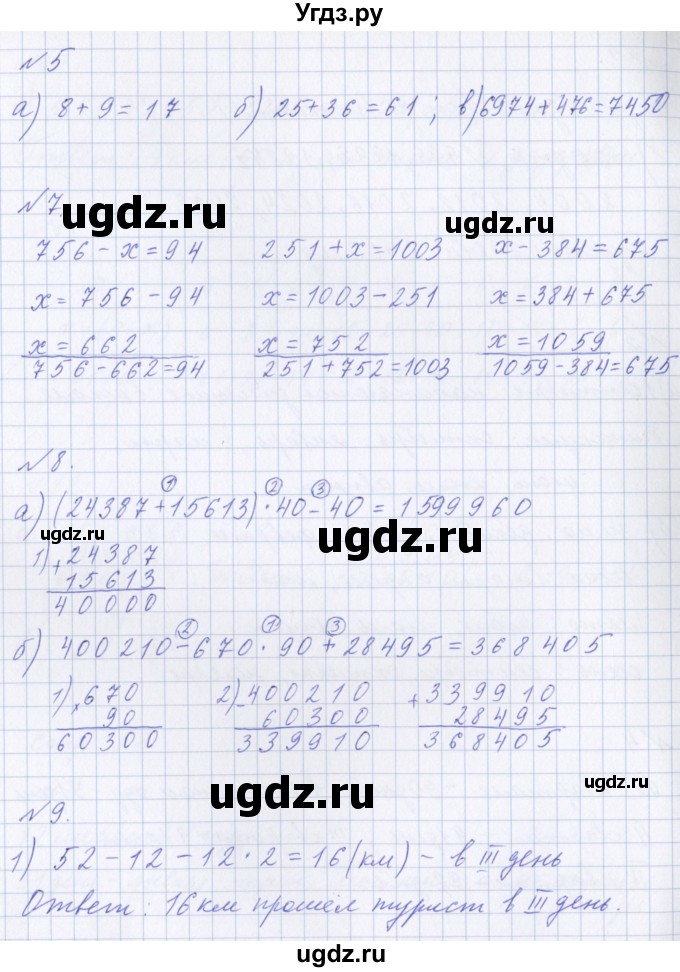 Угдз.ру
№5
а) 8+9=17   б) 25+36=61; в) 6974+476=7450
№7.
ugdz.ru   ugdz.ru
756-x=94   251+x=1003   x-384=675
x=756-94   x=1003-251   x=384+675
x=662   x=752   x=1059
756-662=94   251+752=1003   1059-384=675
№8.
① ② ③
а) (24387+15613)·40-40=1599960
ugdz.ru   ugdz.ru
1) +24387
15613
40000
② ① ③
б) 400210-670·90+28495=368405
1) ×670   2) -400210   +339910
90   60300   28495
60300   339910   368405
ugdz.ru   ugdz.ru
№9.
1) 52-12-12·2=16(км) - в III день
Ответ: 16 км прошёл турист в III день.
ugdz.ru